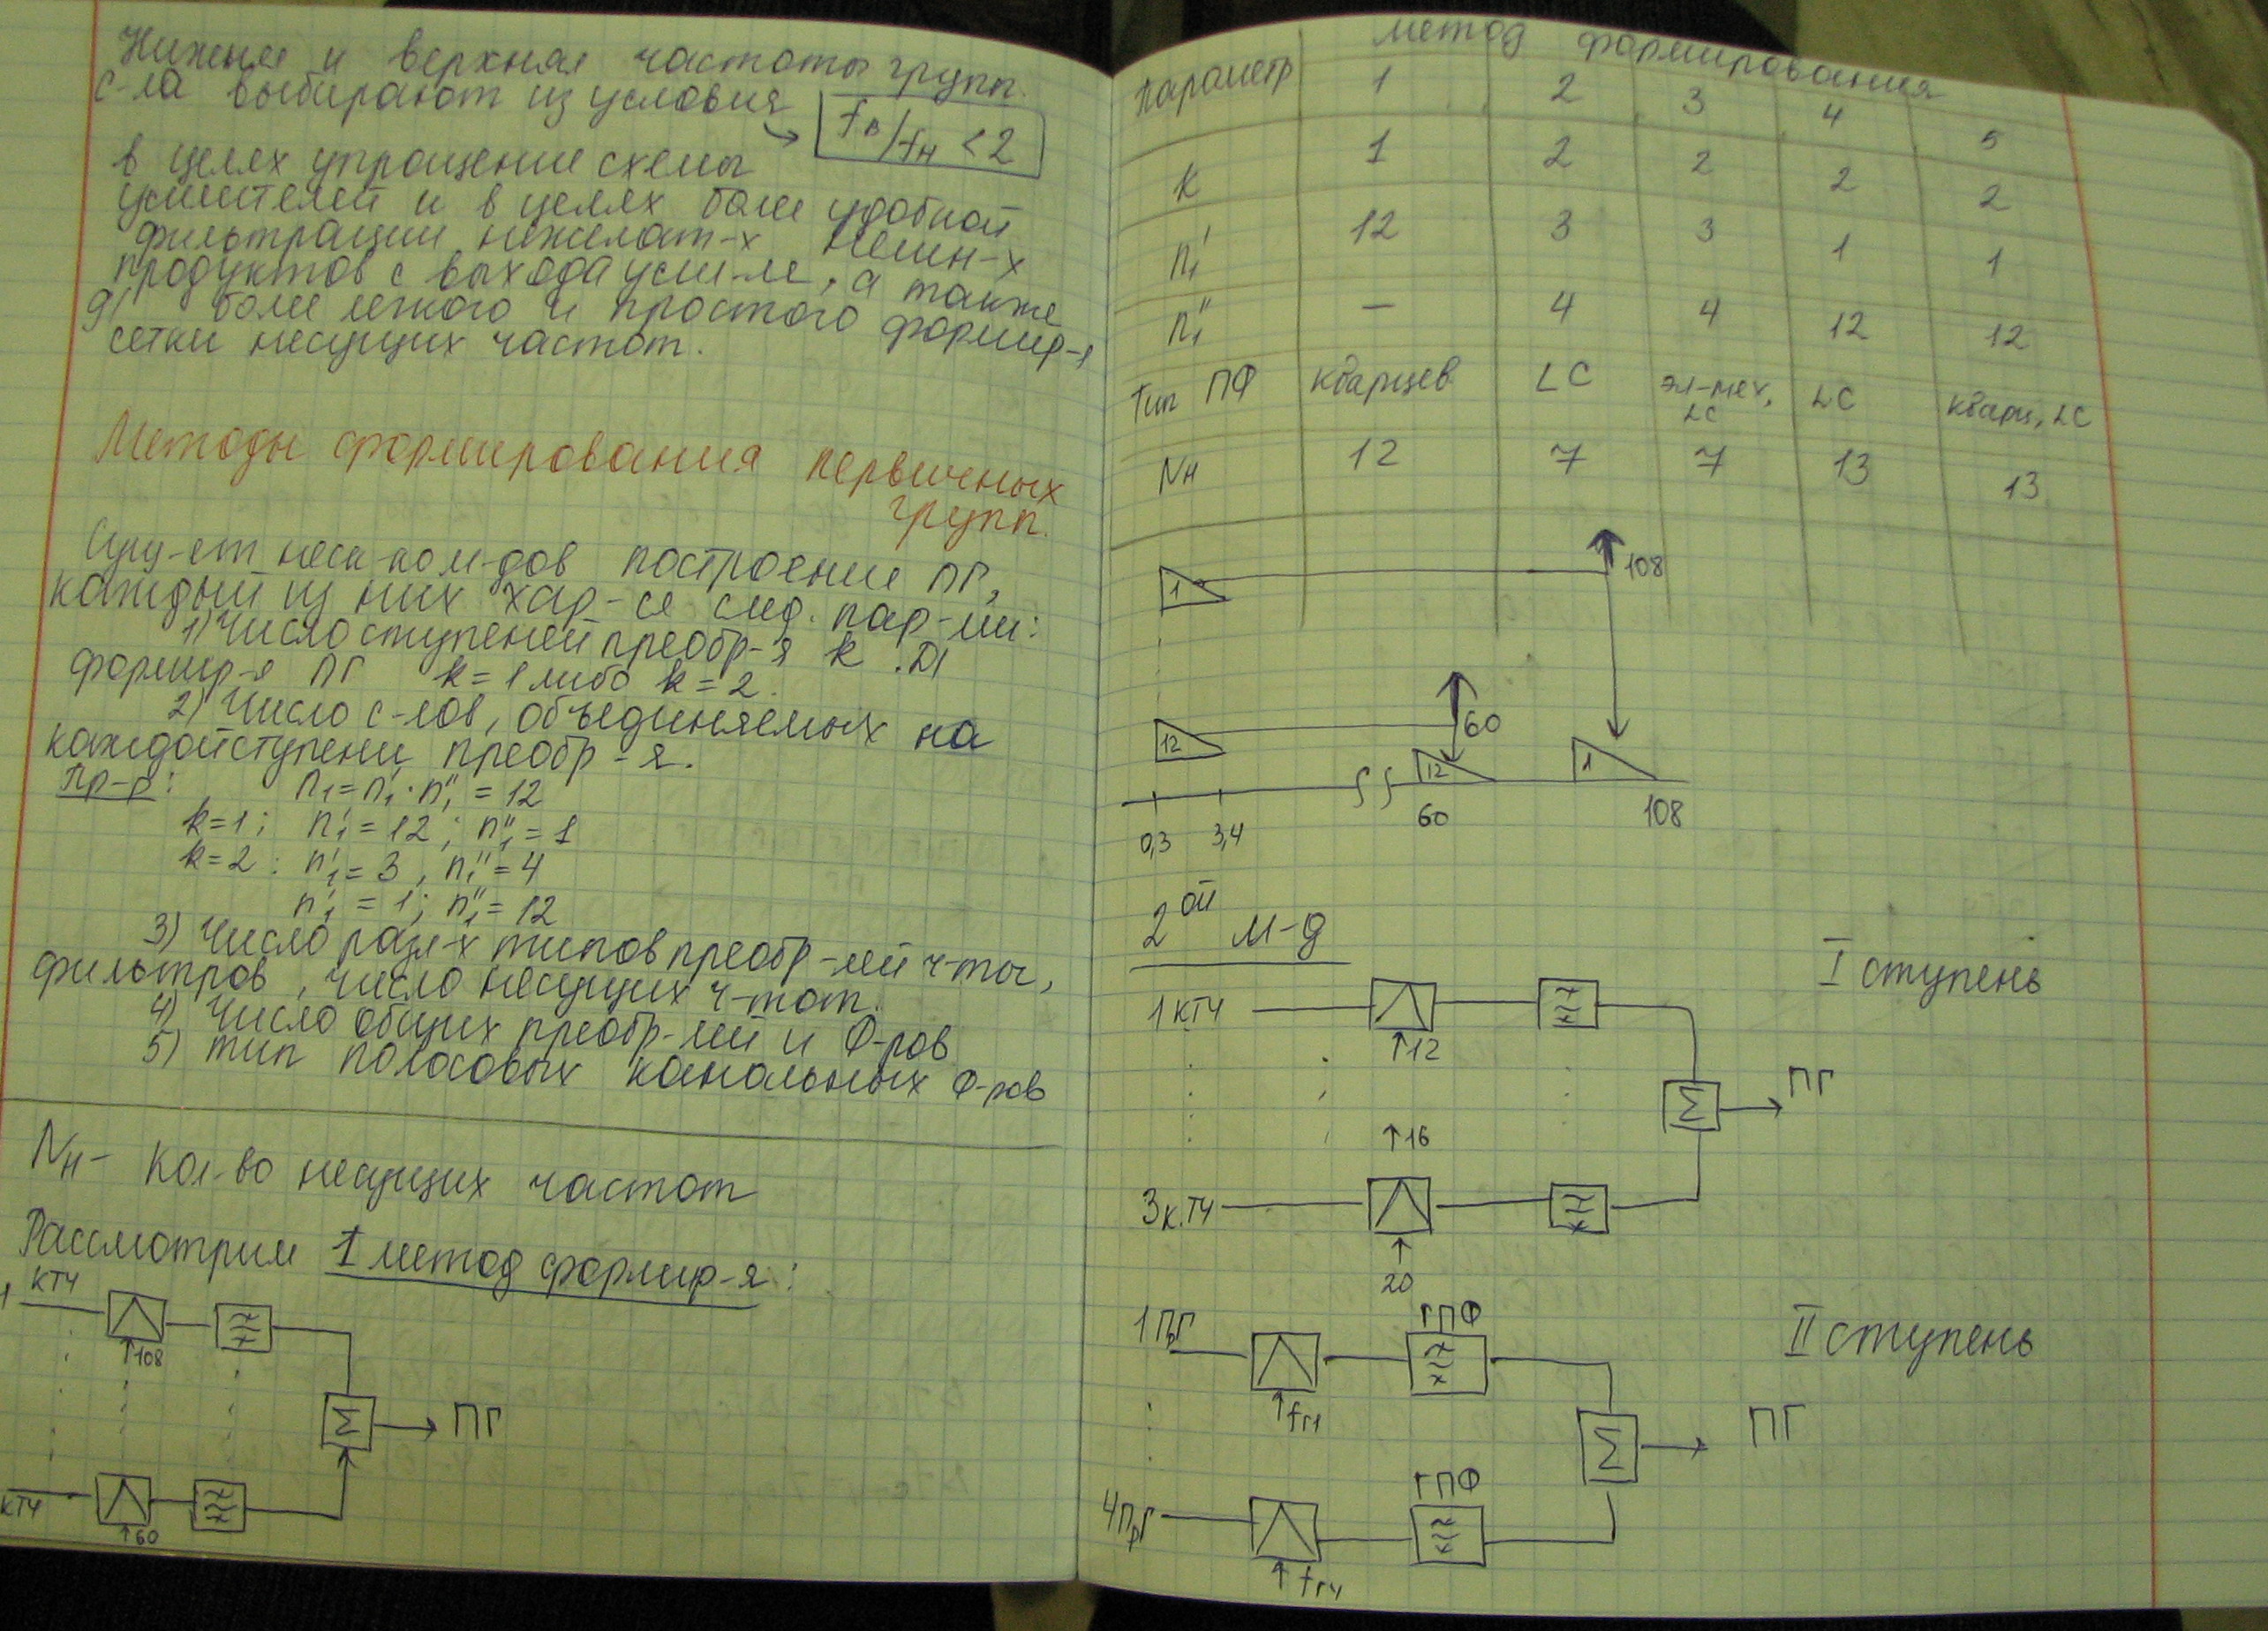 Нижняя и верхняя частоты групп.
с-ла выбирают из условия
fв/fн < 2
в целях упрощение схемы
усилителей и в целях более удобной
фильтрации нежелат-х нелин-х
продуктов с выхода усил-ля, а также
д/ более легкого и простого формир-я
сетки несущих частот.
Методы формирования первичных
групп.
Сущ-ет неск-ко м-дов построение ПГ,
каждый из них хар-ся след. пар-ми:
1) Число ступеней преобр-я k. Дл
формир-я ПГ k=1 либо k=2.
2) Число с-лов, объединяемых на
каждой ступени преобр-я.
Пр-р: n1 = n1' · n1'' = 12
k=1; n1' = 12; n1'' = 1
k=2: n1' = 3, n1'' = 4
n1' = 1; n1'' = 12
3) Число разл-х типов преобр-лей ч-ты,
фильтров, число несущих ч-тот.
4) Число общих преобр-лей и Ф-ров
5) тип полосовых канальных Ф-ров
Nн - Кол-во несущих частот
Рассмотрим 1 метод формир-я:
1 КТЧ
↑108
Σ → ПГ
КТЧ
↑60
параметр метод формирования
1 2 3 4 5
k 1 2 2 2 2
n1' 12 3 3 1 1
n1'' — 4 4 12 12
тип ПФ кварцев LC эл-мех, LC LC кварц, LC
Nн 12 7 7 13 13
1 108
12 60
12 1
0,3 3,4 60 108
2ой м-д
I ступень
1 КТЧ
↑12
Σ → ПГ
↑16
3 к.ТЧ
↑
20
II ступень
1 ПрГ ГПФ
↑fг1
Σ → ПГ
4 ПрГ ГПФ
↑fг4